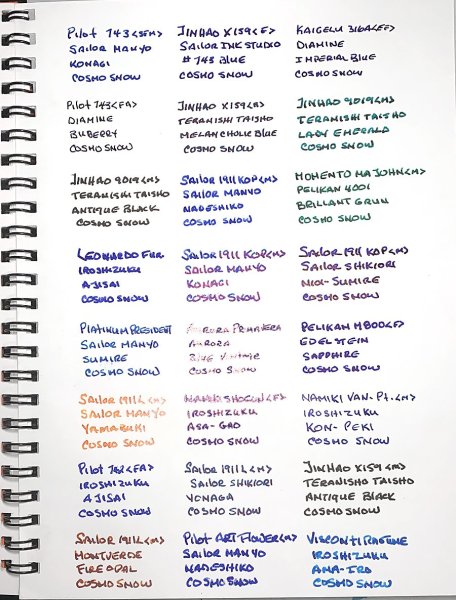 Pilot 743 <SFM>
SAILOR MANYO
KONAGI
COSMO SNOW
JINHAO X159 <F>
SAILOR INK STUDIO
# 743 BLUE
COSMO SNOW
KAIGELU 316A <EF>
DIAMINE
IMPERIAL BLUE
COSMO SNOW
Pilot 743 <FA>
DIAMINE
BUBERRY
COSMO SNOW
JINHAO X159 <M>
TERANISHI TAISHO
MELANCHOLIC BLUE
COSMO SNOW
JINHAO 9019 <M>
TERANISHI TAISHO
LADY EMERALD
COSMO SNOW
JINHAO 9019 <M>
TERANISHI TAISHO
ANTIQUE BLACK
COSMO SNOW
SAILOR 1911 KOP <M>
SAILOR MANYO
NADESHIKO
COSMO SNOW
MOMENTO MAJOHN <M>
PELIKAN 4001
BRILLANT GRUN
COSMO SNOW
LEONARDO FUR.
IROSHIZUKU
AJISAI
COSMO SNOW
SAILOR 1911 KOP <M>
SAILOR MANYO
KONAGI
COSMO SNOW
SAILOR 1911 KOP <M>
SAILOR SHIKIORI
NIOI-SUMIRE
COSMO SNOW
PLATINUM PRESIDENT
SAILOR MANYO
SUMIRE
COSMO SNOW
AURORA PRIMAVERA
AURORA
BLUE VINTAGE
COSMO SNOW
PELIKAN M800 <F>
EDELSTEIN
SAPPHIRE
COSMO SNOW
SAILOR 1911L <M>
SAILOR MANYO
YAMABUKI
COSMO SNOW
SHOGUN <F>
IROSHIZUKU
ASA-GAO
COSMO SNOW
NAMIKI VAN. Pt. <M>
IROSHIZUKU
KON-PEKI
COSMO SNOW
Pilot 742 <FA>
IROSHIZUKU
AJISAI
COSMO SNOW
SAILOR 1911L <M>
SAILOR SHIKIORI
YONAGA
COSMO SNOW
JINHAO X159 <M>
TERANISHO TAISHO
ANTIQUE BLACK
COSMO SNOW
SAILOR 1911L <M>
MONTVERDE
FIRE OPAL
COSMO SNOW
Pilot ART FLOWER <M>
SAILOR MANYO
NADESHIKO
COSMO SNOW
VISCONTI
IROSHIZUKU
AMA-IRO
COSMO SNOW